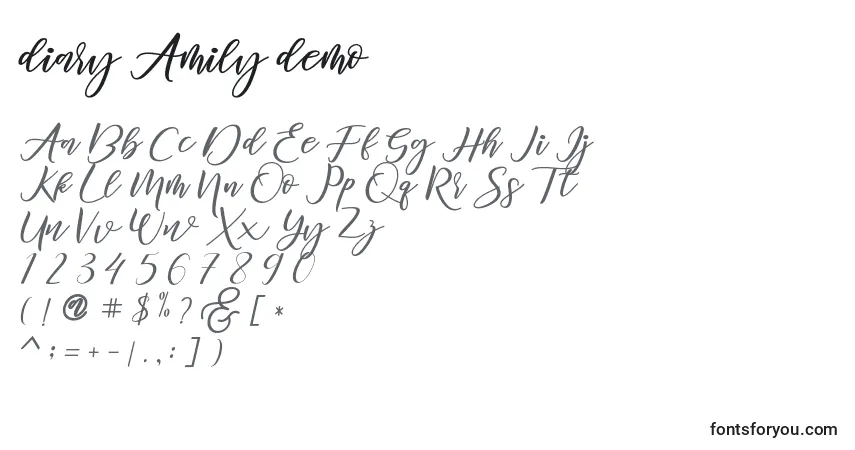 diary Amily demo
Aa Bb Cc Dd Ee Ff Gg Hh Ii Jj
Kk Ll Mm Nn Oo Pp Qq Rr Ss Tt
Uu Vv Ww Xx Yy Zz
1 2 3 4 5 6 7 8 9 0
( ! @ # $ % ? & [ *
^ ; = + - | . , : ] )
fontsforyou.com